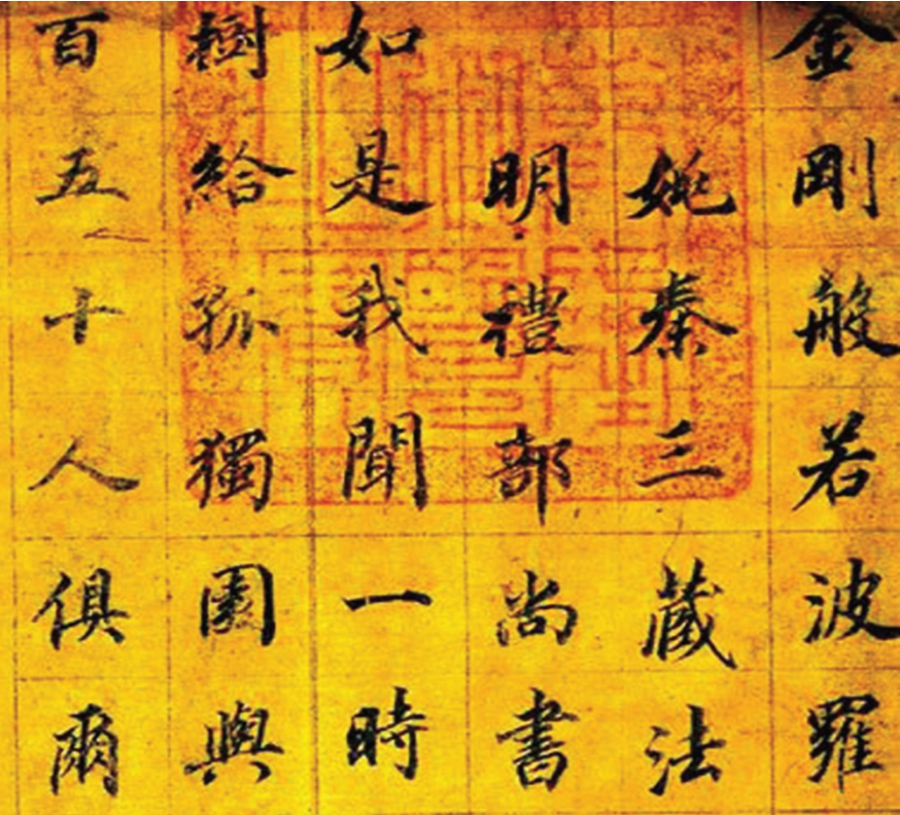 金剛般若波羅
姚秦三藏法
明禮部尚書
如是我聞一時
樹給孤獨園與
百五十人俱爾